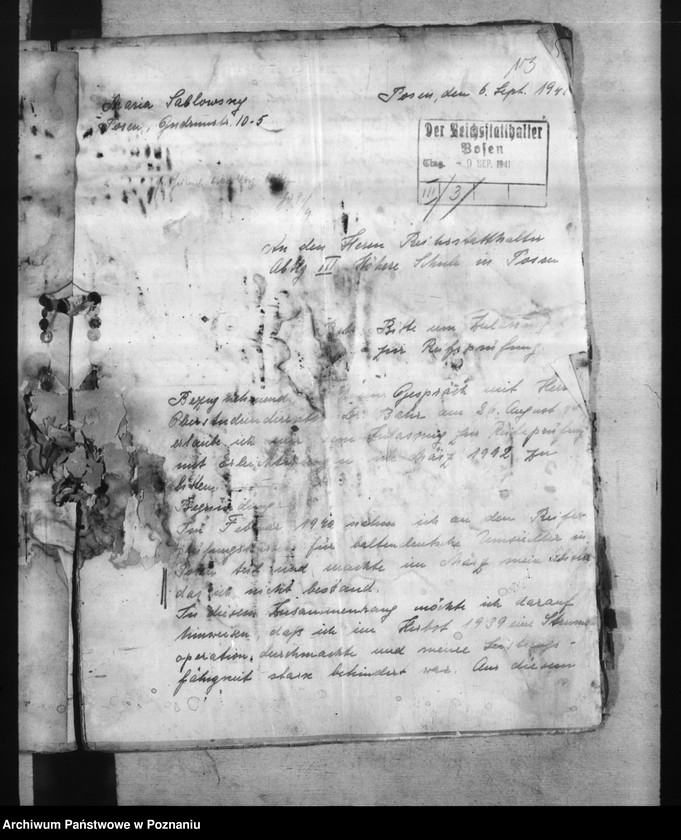 N3
Maria Sablowsny
Posen, den 6. Sept. 194
Posen, Gudrunstr. 10-5
Der Reichsstatthalter
Posen
Eing. - 9 SEP. 1941
III / 3 /
An den Herrn Reichsstatthalter
Abtlg III Höhere Schule in Posen
Bitte um Zulassung
zur Reifeprüfung
Bezugnehmend Gespräch mit Herr
Oberstudiendirektor Dr. Bahr am 20. August
erlaube ich mir um Zulassung zur Reifeprüfung
mit im März 1942 zu
bitten.
Begründung
Im Februar 1940 nahm ich an dem Reife-
für baltendeutsche Umsiedler in
Posen teil und machte im März mein
das ich nicht bestand.
In diesem Zusammenhang möchte ich darauf
hinweisen, daß ich im Herbst 1939 eine
operation durchmachte und meine Leistungs-
fähigkeit stark behindert war. Aus diesem
Archiwum Państwowe w Poznaniu